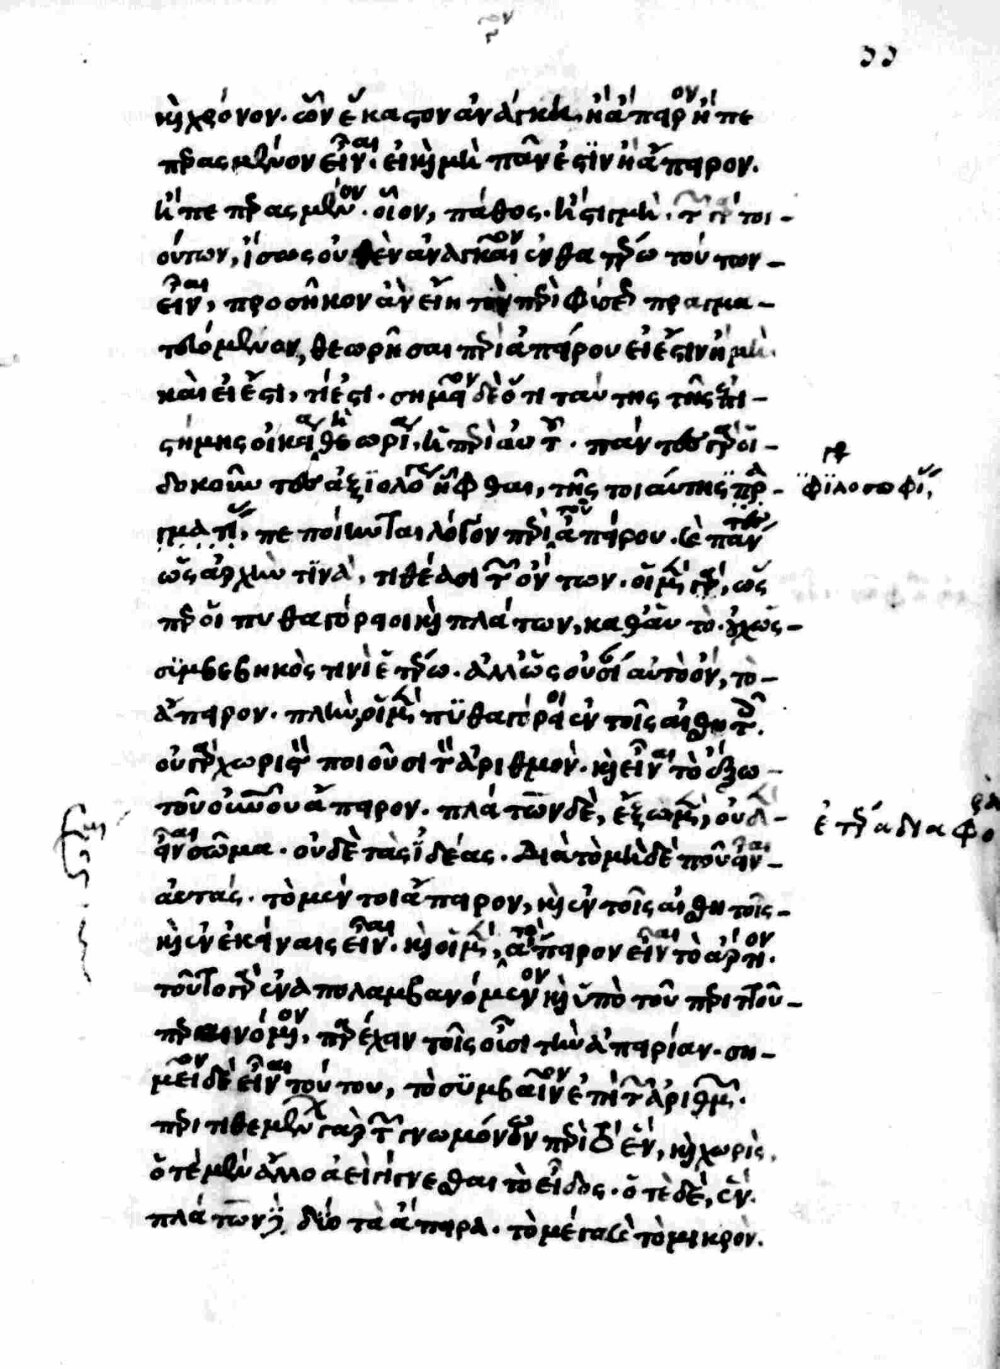 καὶ χρόνον. ὧν ἕκαστον ἀναγκαῖον ἢ ἄπειρον ἢ πε
περασμένον εἶναι. εἰ καὶ μὴ πᾶν ἐστὶν ἢ ἄπειρον.
ἢ πεπερασμένον. οἷον, πάθος. ἢ στιγμή. τῶν γὰρ τοι-
ούτων, ἴσως οὐθὲν ἀναγκαῖον ἐν θατέρῳ τούτων-
εἶναι, προσῆκον ἂν εἴη τὸν περὶ φύσεως πραγμα-
τευόμενον, θεωρῆσαι περὶ ἀπείρου εἰ ἔστιν ἢ μὴ.
καὶ εἰ ἔστι, τί ἐστι. σημεῖον δὲ ὅτι ταύτης τῆς ἐπι-
στήμης οἰκεία ἡ θεωρία, ἡ περὶ αὐτοῦ. πάντες γὰρ οἱ-
δοκοῦντες ἀξιολόγως ἧφθαι, τῆς τοιαύτης πρα-
φιλοσοφίας
γματείας, πεποίηνται λόγον περὶ τοῦ ἀπείρου. καὶ πάντες
ὡς ἀρχήν τινα, τιθέασι τῶν ὄντων. οἱ μὲν γὰρ, ὡς
περ οἱ πυθαγόρειοι καὶ πλάτων, καθ᾽ αὑτό. οὐχ ὡς-
συμβεβηκὸς τινὶ ἑτέρῳ. ἀλλ᾽ ὡς οὐσίαν αὐτὸ ὂν, τὸ-
ἄπειρον. πλὴν οἱ μὲν πυθαγόρειοι ἐν τοῖς αἰσθητοῖς.
οὐ γὰρ χωριστὸν ποιοῦσι τὸν ἀριθμόν. καὶ εἶναι τὸ ἔξω-
τοῦ οὐρανοῦ ἄπειρον. πλάτων δὲ, ἔξω μὲν, οὐδὲν-
ἑτέρα διαφο
εἶναι σῶμα. οὐδὲ τὰς ἰδέας. διὰ τὸ μηδὲ ποῦ εἶναι-
αὐτάς. τὸ μέντοι ἄπειρον, καὶ ἐν τοῖς αἰσθητοῖς-
καὶ ἐν ἐκείναις εἶναι. καὶ οἱ μὲν, τὸ ἄπειρον εἶναι τὸ ἄρτιον.
τοῦτο γὰρ ἐναπολαμβανόμενον καὶ ὑπὸ τοῦ περιττοῦ-
περαινόμενον, παρέχειν τοῖς οὖσι τὴν ἀπειρίαν. ση-
μεῖον δὲ εἶναι τούτου, τὸ συμβαῖνον ἐπὶ τῶν ἀριθμῶν.
περιτιθεμένων γὰρ τῶν γνωμόνων περὶ τὸ ἓν, καὶ χωρὶς.
ὁτὲ μὲν ἄλλο ἀεὶ γίγνεσθαι τὸ εἶδος. ὁτὲ δὲ, ἕν.
πλάτων δὲ δύο τὰ ἄπειρα. τὸ μέγα καὶ τὸ μικρόν.